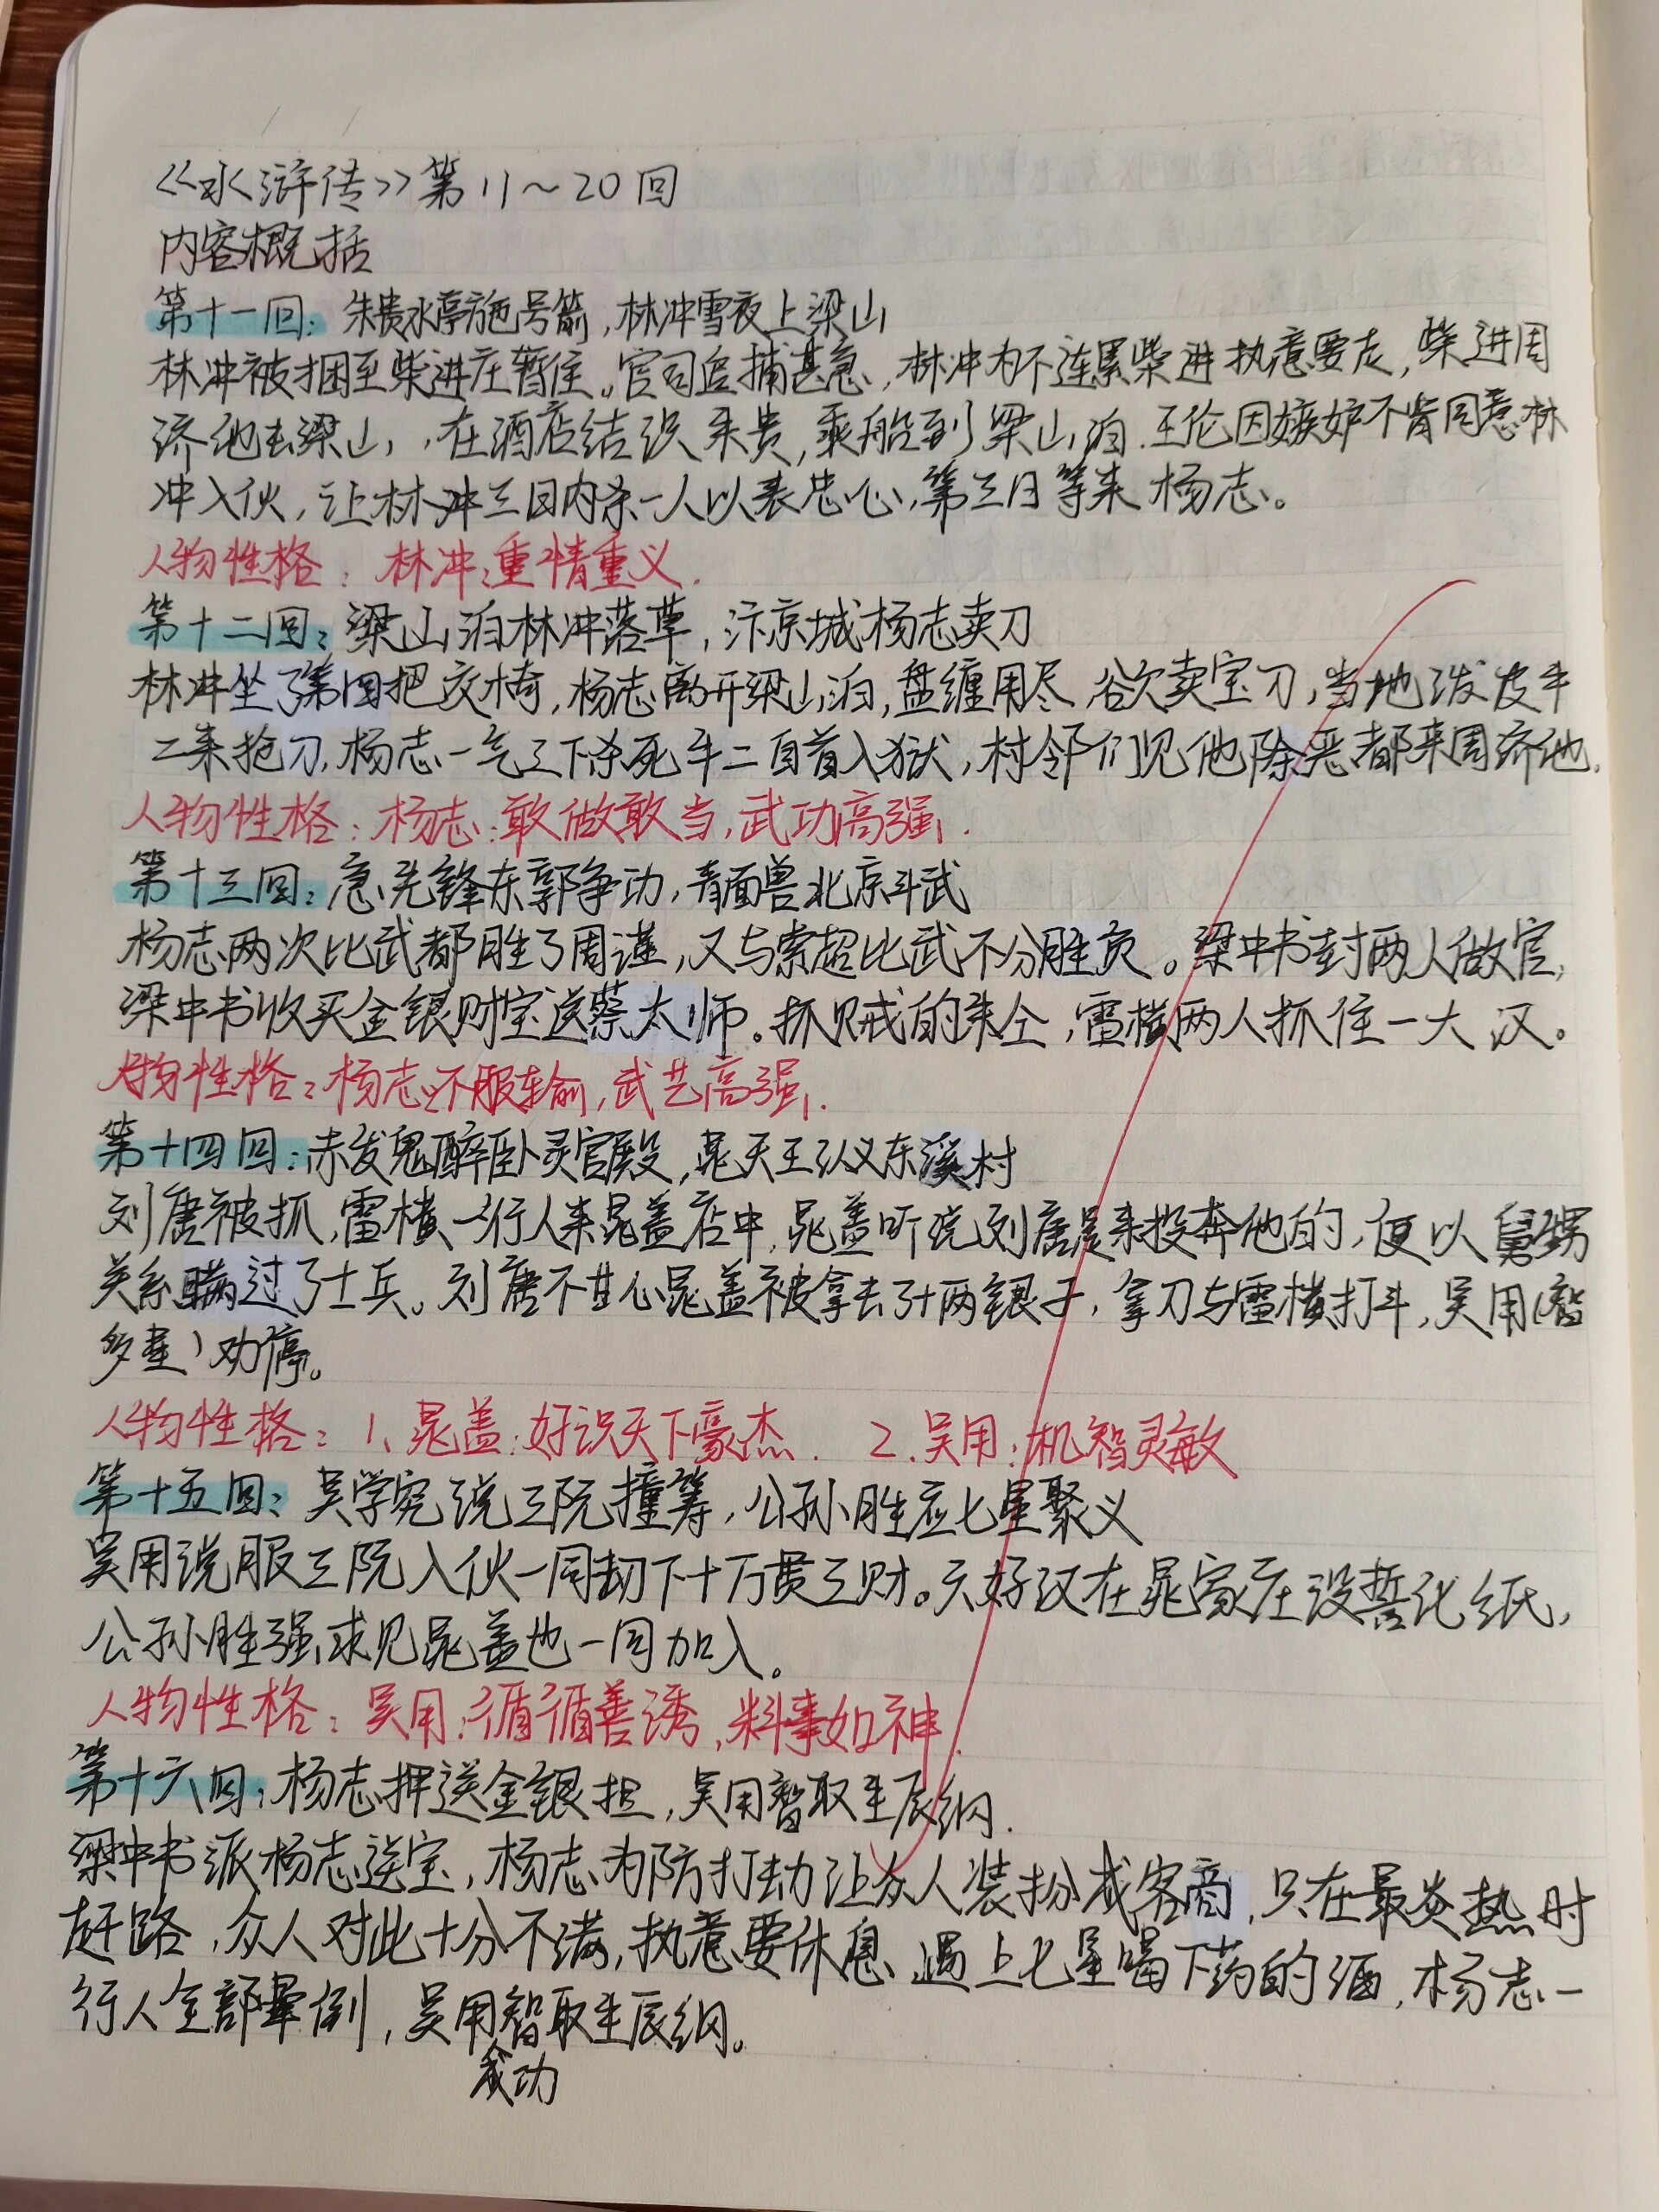 <<水浒传>>第11～20回
内容概括
第十一回：朱贵水亭施号箭，林冲雪夜上梁山
林冲被捆至柴进庄暂住。官司追捕甚急，林冲为不连累柴进执意要走，柴进周
济他去梁山，在酒店结识朱贵，乘船到梁山泊．王伦因嫉妒不肯同意林
冲入伙，让林冲三日内杀一人以表忠心，第三日等来杨志。
人物性格：林冲：重情重义．
第十二回：梁山泊林冲落草，汴京城杨志卖刀
林冲坐了第四把交椅，杨志离开梁山泊，盘缠用尽欲卖宝刀，当地泼皮牛
二来抢刀，杨志一气之下杀死牛二自首入狱，村邻们见他除恶都来周济他．
人物性格：杨志：敢做敢当，武功高强．
第十三回：急先锋东郭争功，青面兽北京斗武
杨志两次比武都胜了周谨，又与索超比武不分胜负。梁中书封两人做官，
梁中书收买金银财宝送蔡太师。抓贼的朱仝，雷横两人抓住一大汉。
人物性格：杨志：不服输，武艺高强．
第十四回：赤发鬼醉卧灵官殿，晁天王认义东溪村
刘唐被抓，雷横一行人来晁盖店中，晁盖听说刘唐是来投奔他的，便以舅甥
关系瞒过了士兵。刘唐不甘心晁盖被拿去了十两银子，拿刀与雷横打斗，吴用（智
多星）劝停。
人物性格：1、晁盖：好识天下豪杰．2．吴用：机智灵敏
第十五回：吴学究说三阮撞筹，公孙胜应七星聚义
吴用说服三阮入伙一同劫下十万贯之财。六好汉在晁家庄设誓化纸，
公孙胜强求见晁盖也一同加入。
人物性格：吴用：循循善诱，料事如神．
第十六回：杨志押送金银担，吴用智取生辰纲．
梁中书派杨志送宝，杨志为防打劫让众人装扮成客商，只在最炎热时
赶路，众人对此十分不满，执意要休息、遇上七星喝下药的酒，杨志一
行人全部晕倒，吴用智取生辰纲。
成功